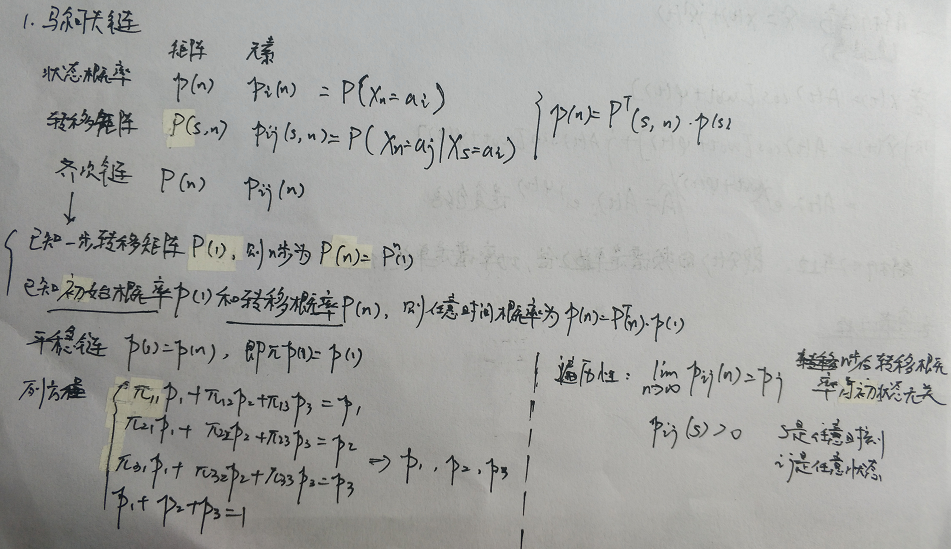 1. 马尔可夫链
矩阵 元素
状态概率 p(n) pi(n) = P(Xn=ai)
转移矩阵 P(s,n) pij(s,n)=P(Xn=aj|Xs=ai)
p(n)=Pᵀ(s,n)·p(s)
齐次链 P(n) Pij(n)
已知一步转移矩阵P(1),则n步为P(n)=Pⁿ(1)
已知初始概率p(1)和转移概率P(n),则任意时间概率为p(n)=Pᵀ(n)·p(1)
平稳链 p(1)=p(n),即πp(1)=p(1)
列方程
π11p1+π12p2+π13p3=p1
π21p1+π22p2+π23p3=p2
π31p1+π32p2+π33p3=p3
p1+p2+p3=1
⇒ p1, p2, p3
遍历性: lim n→∞ pij(n)=pj n步后转移概率与初状态无关
pij(s)>0 s是任意时刻
i j是任意状态